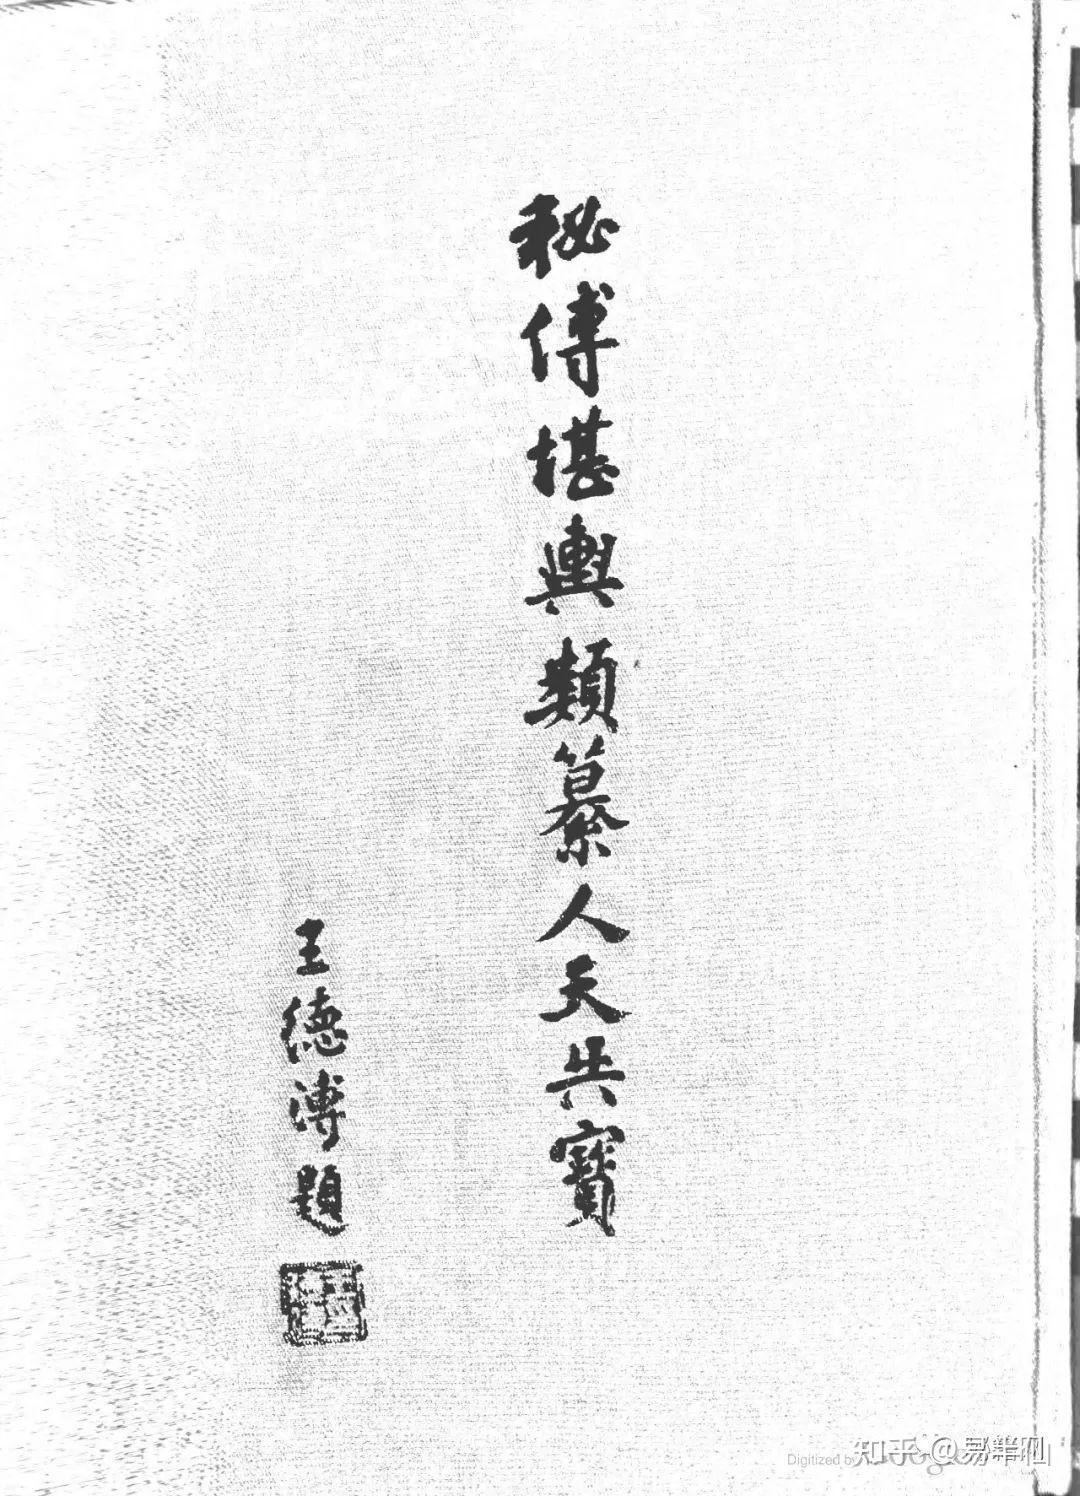 秘傳堪輿類纂人天共寶
王德溥題
Digitized by Google
知乎 @易雜吧